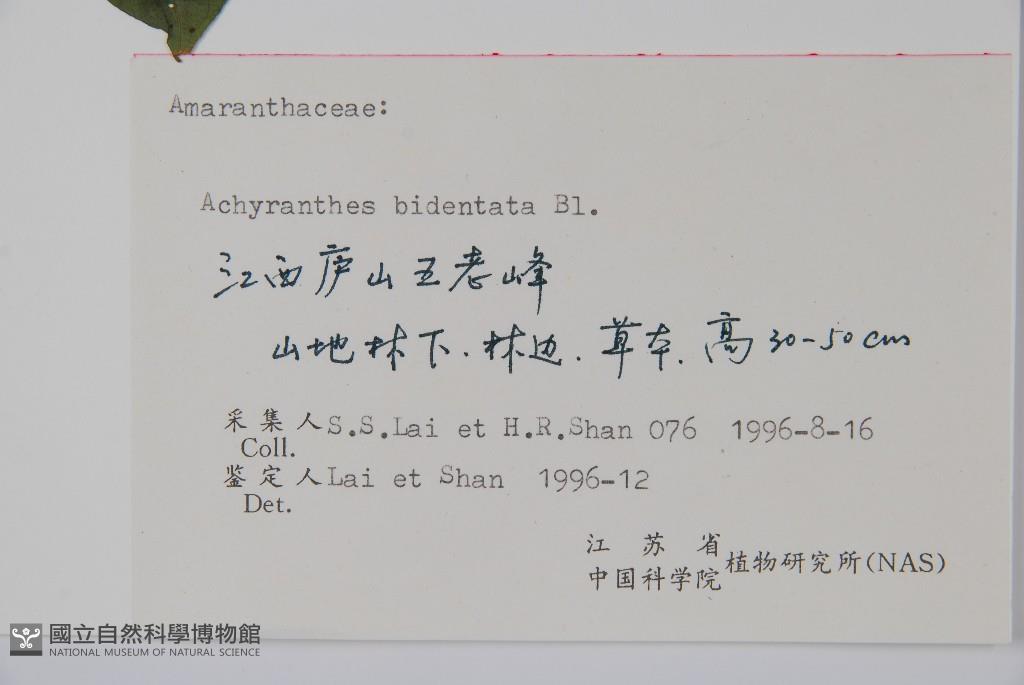 Amaranthaceae:
Achyranthes bidentata Bl.
江西庐山五老峰
山地林下.林边.草本.高30-50cm
采集人S.S.Lai et H.R.Shan 076 1996-8-16
Coll.
鉴定人Lai et Shan 1996-12
Det.
江苏省
中国科学院植物研究所(NAS)
國立自然科學博物館
NATIONAL MUSEUM OF NATURAL SCIENCE